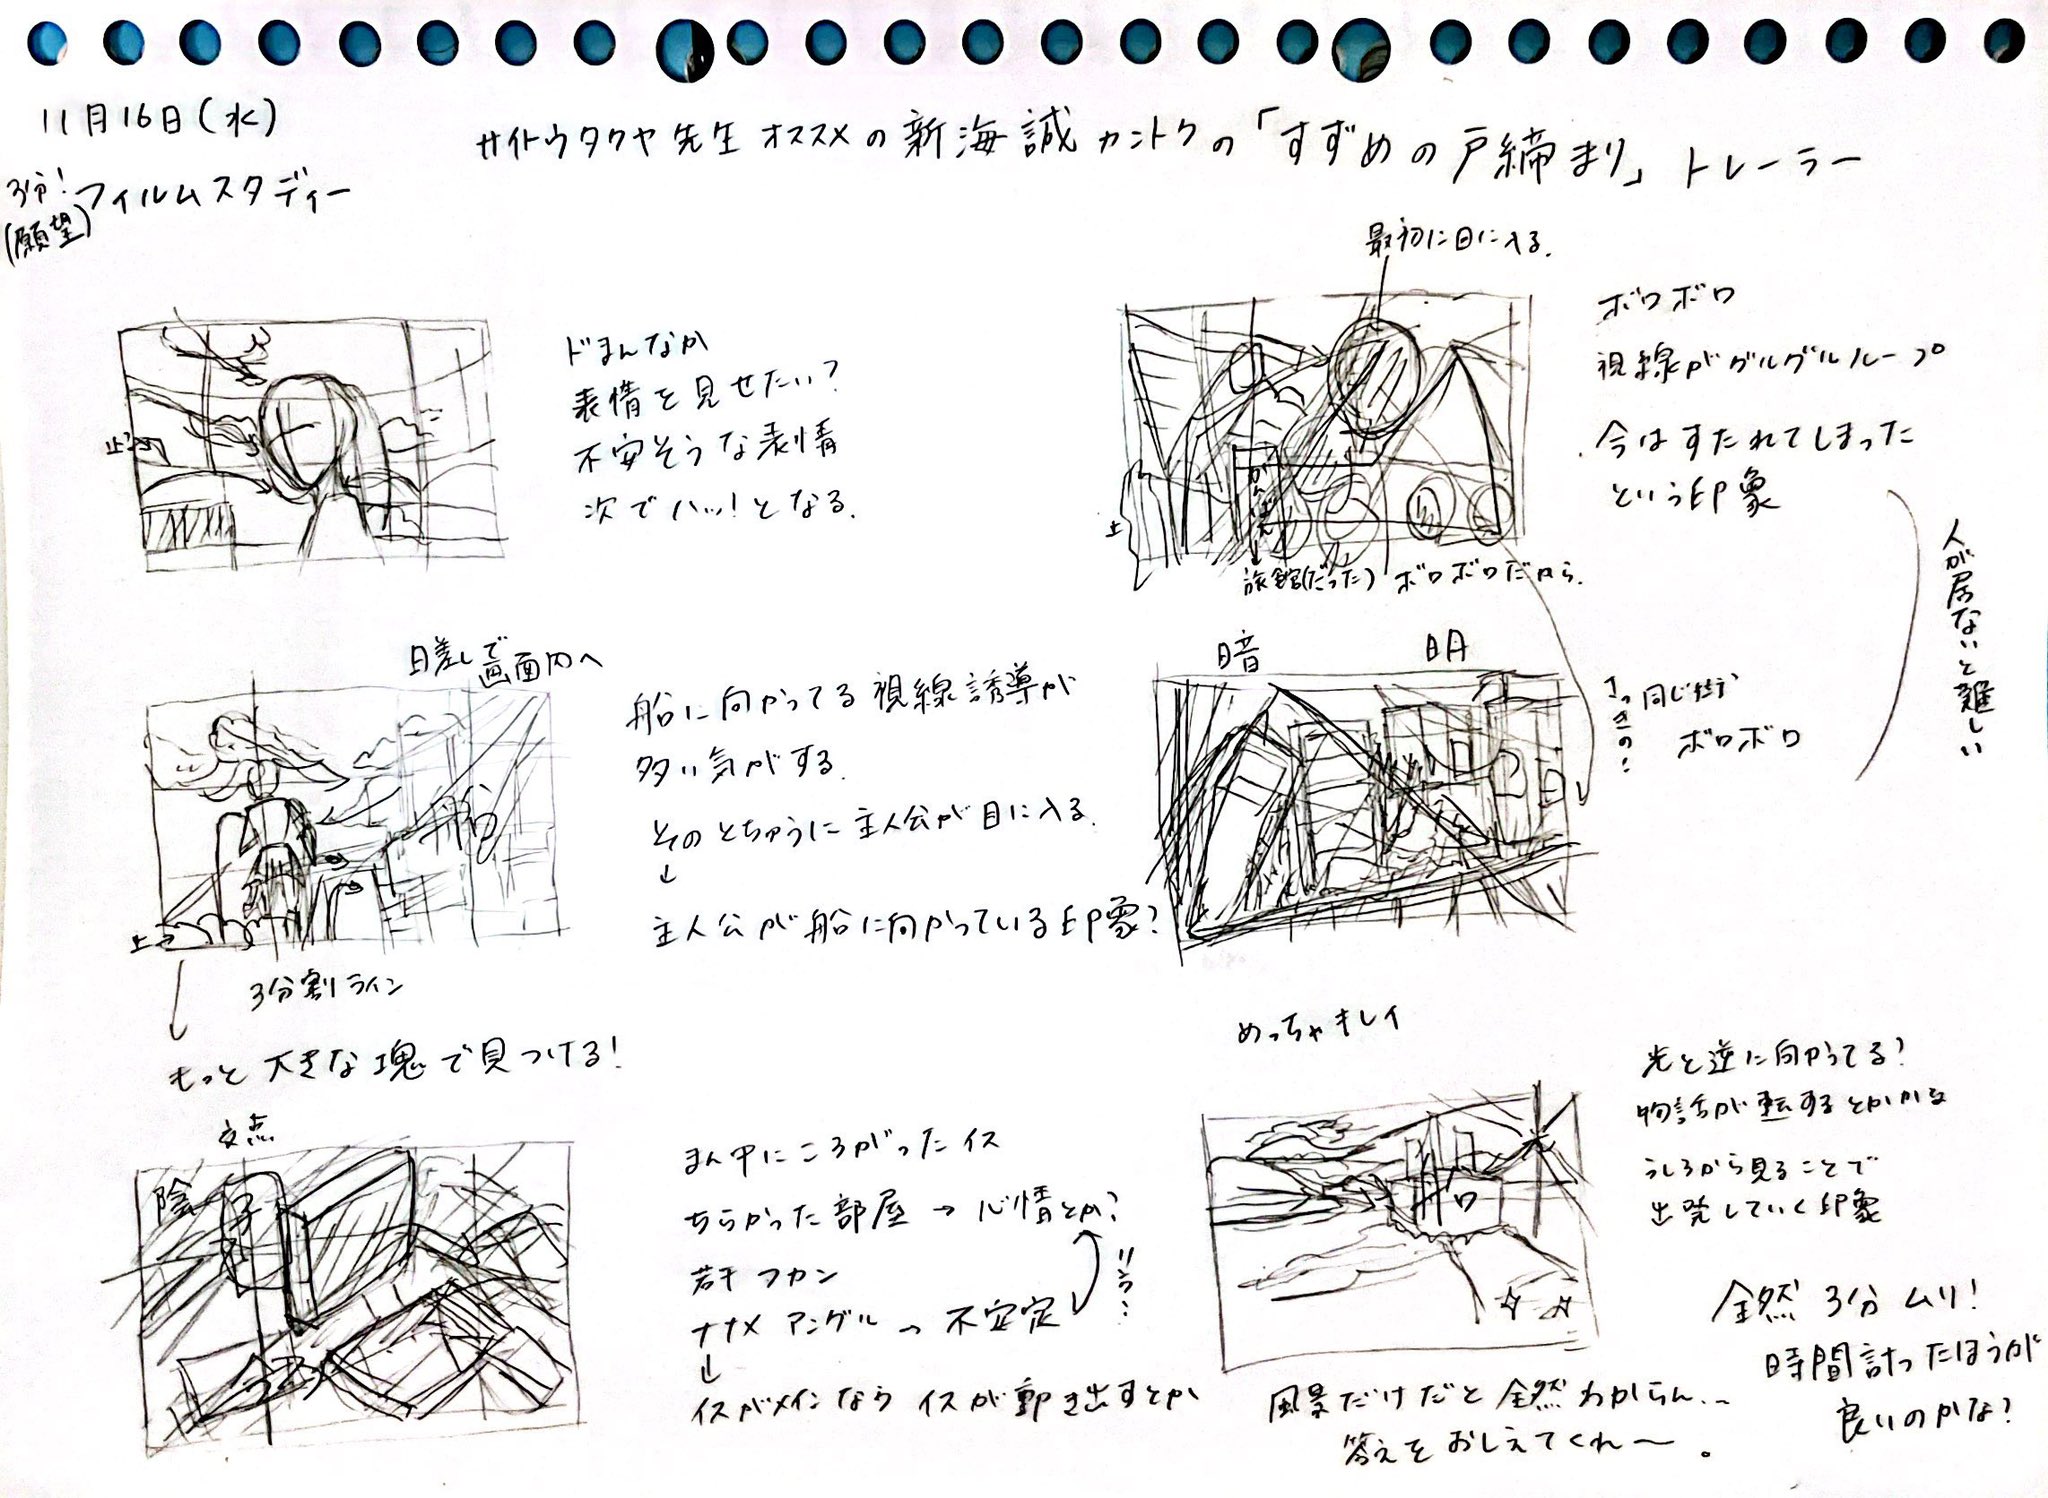 11月16日(水)
サイトウタクヤ先生オススメの新海誠カントクの「すずめの戸締まり」トレーラー
3分!フィルムスタディー
(願望)
ドまんなか
表情を見せたい?
不安そうな表情
次でハッ!となる.
最初に目に入る.
ボロボロ
視線がグルグルループ
今はすたれてしまった
という印象
かんばん
旅館(だった) ボロボロだから.
人が居ないと難しい
日差しで
画面内へ
船
船に向かってる視線誘導が
多い気がする.
そのとちゅうに主人公が目に入る.
↓
主人公が船に向かっている印象?
3分割ライン
もっと大きな塊で見つける!
暗
明
さっきの:
同じ街
ボロボロ
交点
陰
まん中にころがったイス
ちらかった部屋→心情とか?
若干フカン
ナナメアングル→不安定
↓
イスがメインならイスが動き出すとか
めっちゃキレイ
光と逆に向かってる?
物語が転するとかかな
うしろから見ることで
出発していく印象
風景だけだと全然わからん...
答えをおしえてくれ〜。
全然3分ムリ!
時間計ったほうが
良いのかな?